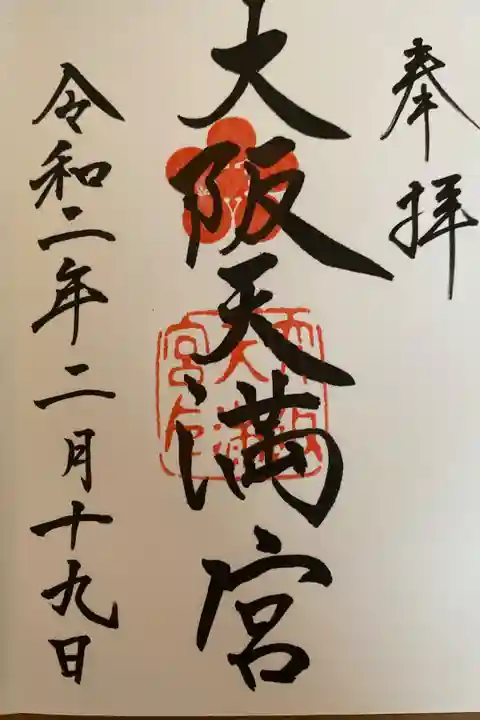 奉拝
大阪天満宮
令和二年二月十九日